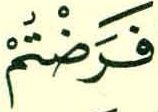 فَرَضْتُمْ